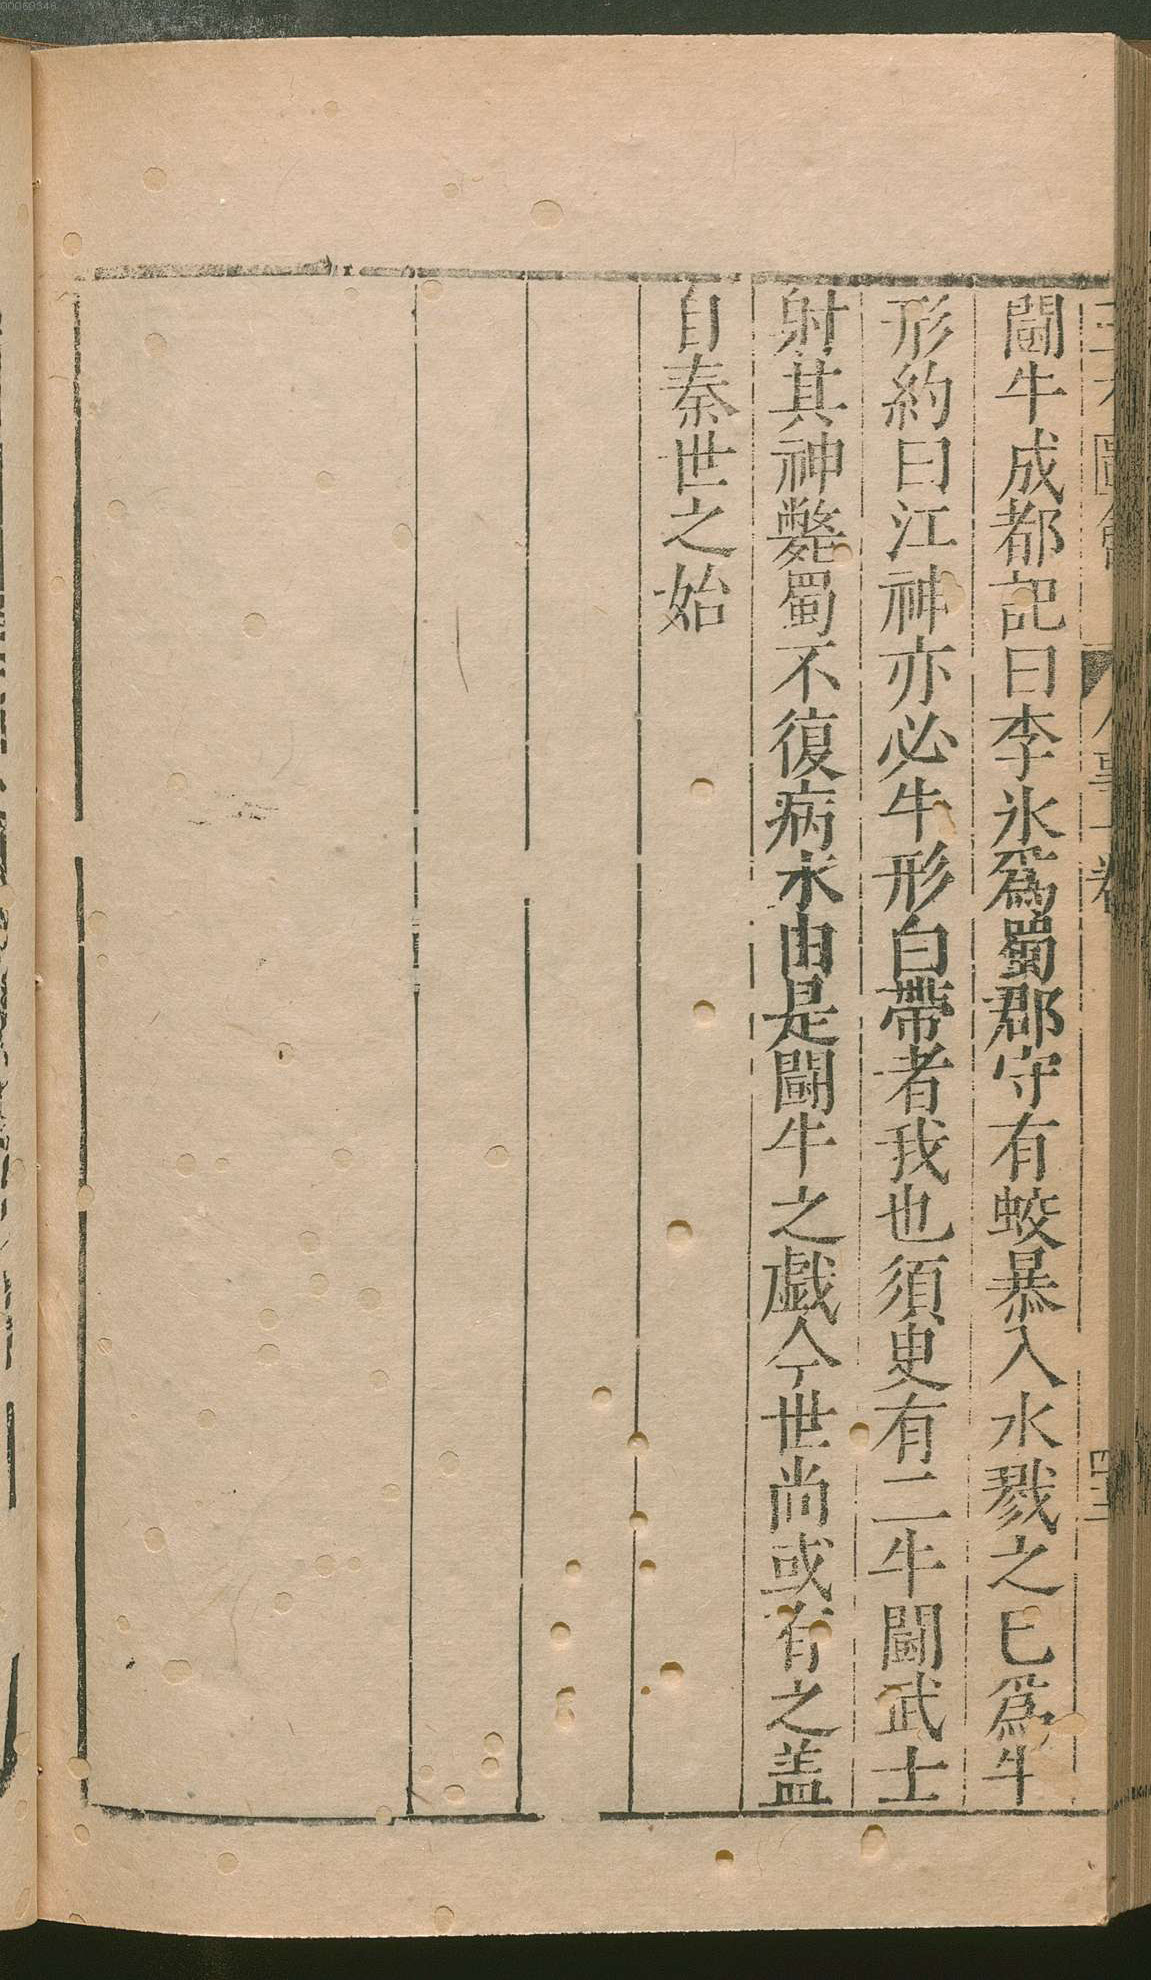 鬬牛成都記曰李氷爲蜀郡守有蛟暴入水戮之已爲牛
形約曰江神亦必牛形白帶者我也須㬰有二牛鬬武士
射其神斃蜀不復病水由是鬬牛之戲今世尚或有之盖
自秦世之始
00060346